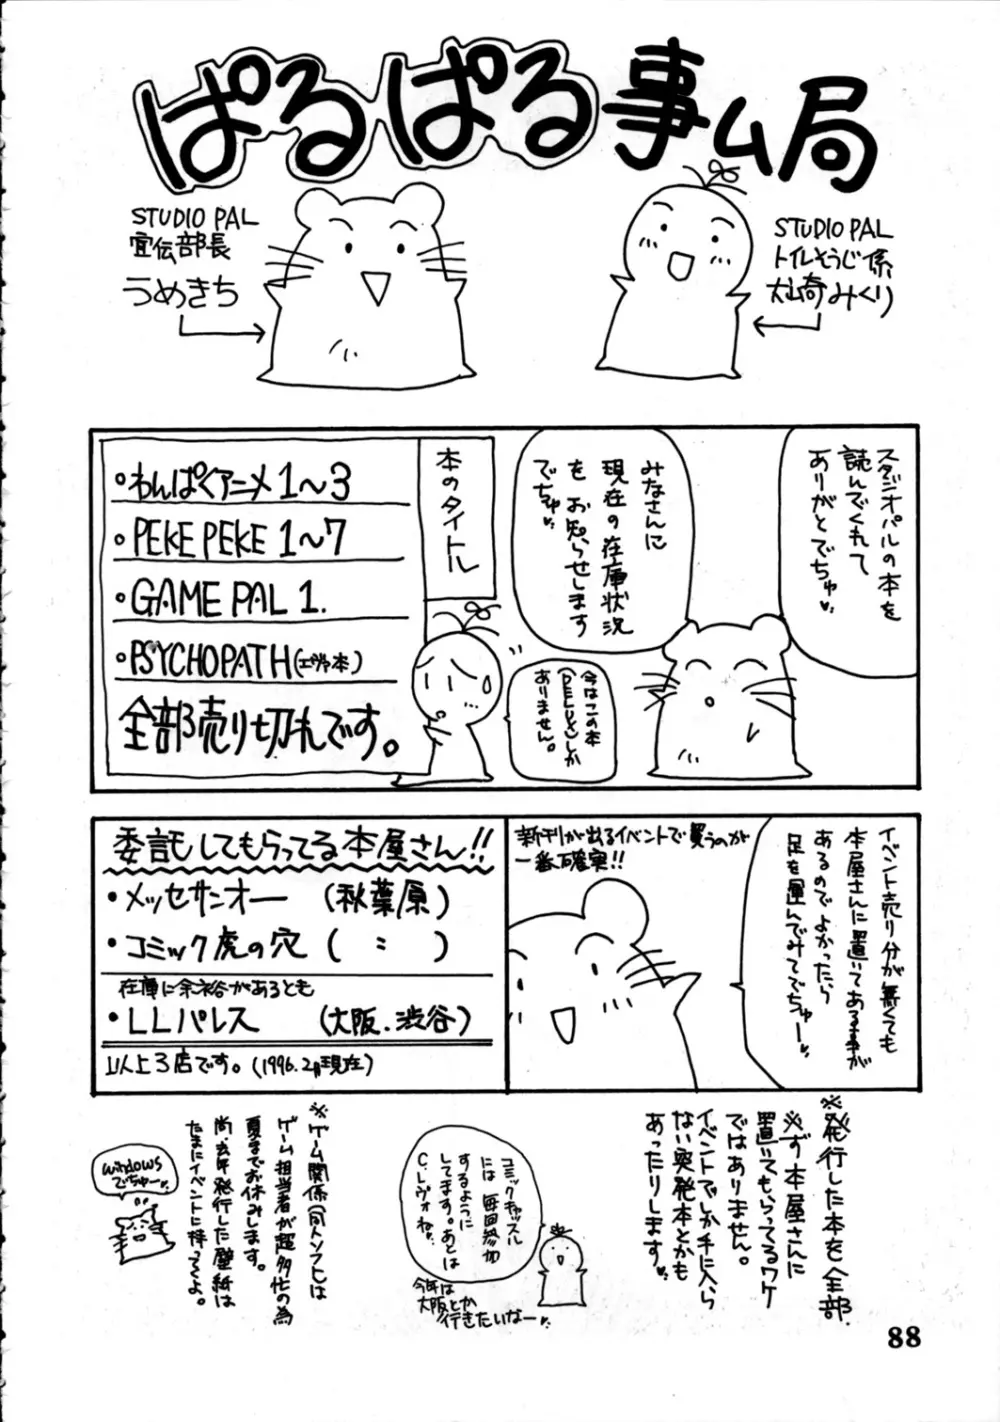 ぱるぱる事ム局
STUDIO PAL
宣伝部長
うめきち
STUDIO PAL
トイレそうじ係
大山奇みくり
スタジオパルの本を
読んでくれて
ありがとでちゅ
みなさんに
現在の在庫状況
を お知らせします
でちゅ
今はこの本
(DELUX)しか
ありません。
本のタイトル
・わんぱくアニメ 1〜3
・PEKE PEKE 1〜7
・GAME PAL 1.
・PSYCHOPATH(エヴァ本)
全部売り切れです。
イベント売り分が無くても
本屋さんに置いてある事が
あるのでよかったら
足を運んでみてでちゅー
新刊が出るイベントで買うのが
一番確実!!
委託してもらってる本屋さん!!
・メッセサンオー (秋葉原)
・コミック虎の穴 ( 〃 )
在庫に余裕があるとも
・LLパレス (大阪.渋谷)
以上3店です。(1996.2月現在)
※発行した本を全部
※ず本屋さんに
置いてもらってるワケ
ではありません。
イベントでしか手に入ら
ない突発本とかも
あったりします
コミックキャッスル
には毎回参加
するように
してます。あとは
C.レヴォね。
今年は
大阪とか
行きたいなー
※ゲーム関係(同人ソフト)は
ゲーム担当者が超多忙の為
夏までお休みします。
尚、去年発行した壁紙は
たまにイベントに持ってくよ。
windows
でちゅー
88